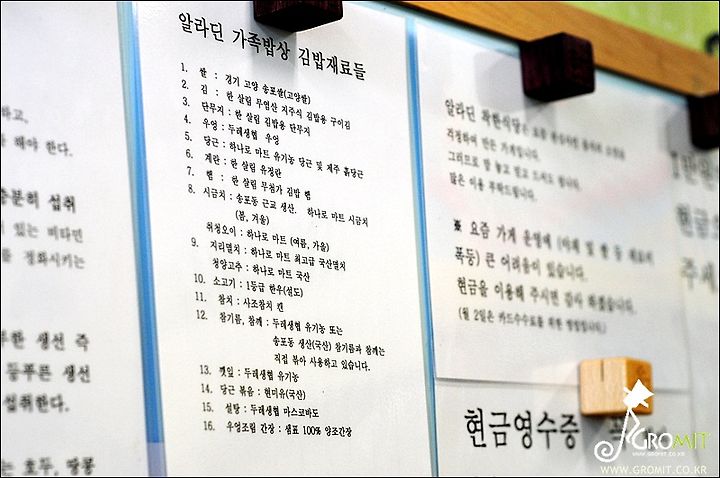 하고,
해야 한다.
충분히 섭취
있는 비타민
를 정화시키는
부한 생선 즉
등푸른 생선
섭취한다.
는 호두, 땅콩
알라딘 가족밥상 김밥재료들
1. 쌀 : 경기 고양 송포쌀(고양쌀)
2. 김 : 한 살림 무염산 지주식 김밥용 구이김
3. 단무지 : 한 살림 김밥용 단무지
4. 우엉 : 두레생협 우엉
5. 당근 : 하나로 마트 유기농 당근 및 제주 흙당근
6. 계란 : 한 살림 유정란
7. 햄 : 한 살림 무첨가 김밥 햄
8. 시금치 : 송포동 근교 생산, 하나로 마트 시금치
(봄, 겨울)
취청오이 : 하나로 마트 (여름, 가을)
9. 지리멸치 : 하나로 마트 최고급 국산멸치
청양고추 : 하나로 마트 국산
10. 소고기 : 1등급 한우(설도)
11. 참치 : 사조참치 캔
12. 참기름, 참깨 : 두레생협 유기농 또는
송포동 생산(국산) 참기름과 참깨는
직접 볶아 사용하고 있습니다.
13. 깻잎 : 두레생협 유기농
14. 당근 볶음 : 현미유(국산)
15. 설탕 : 두레생협 마스코바도
16. 우엉조림 간장 : 샘표 100% 양조간장
알라딘 착한식당은
걱정하여 만든 가게입니다.
그러므로 맘 놓고 믿고 드셔도 됩니다.
많은 이용 부탁드립니다.
※ 요즘 가게 운영에 (야채 및 쌀 등 재료비
폭등) 큰 어려움이 있습니다.
현금을 이용해 주시면 감사 하겠습니다.
(월 2일은 카드수수료를 위한 영업입니다.)
현금영수증
현금
주세
GROMIT
WWW.GROMIT.CO.KR
WWW.GROMIT.CO.KR